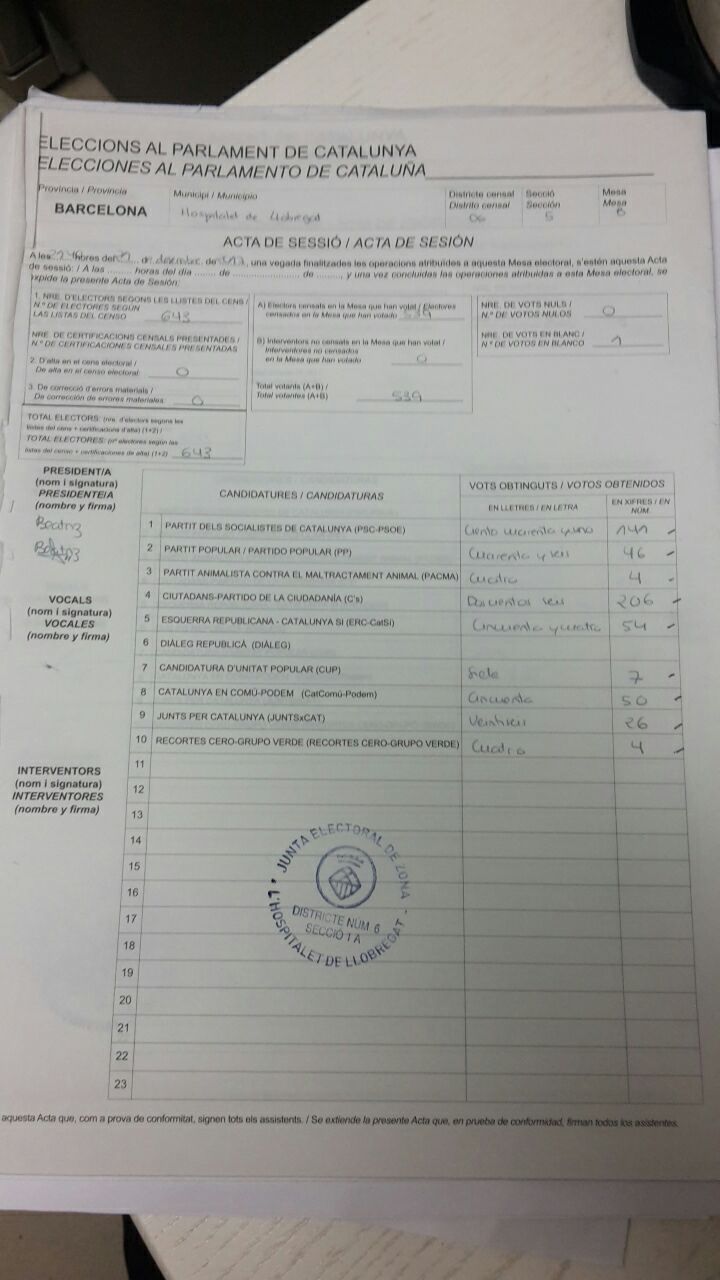 ELECCIONS AL PARLAMENT DE CATALUNYA
ELECCIONES AL PARLAMENTO DE CATALUÑA
Provincia / Provincia
BARCELONA
Municipi / Municipio
Hospitalet de Llobregat
Districte censal
Distrito censal
06
Secció
Sección
5
Mesa
Mesa
B
ACTA DE SESSIÓ / ACTA DE SESIÓN
A les hores del de desembre de una vegada finalitzades les operacions atribuïdes a aquesta Mesa electoral, s'estén aquesta Acta
de sessió: / A las ........ horas del día ....... de ................... de ........, y una vez concluidas las operaciones atribuidas a esta Mesa electoral, se
expide la presente Acta de Sesión:
1. NRE. D'ELECTORS SEGONS LES LLISTES DEL CENS /
N.º DE ELECTORES SEGÚN
LAS LISTAS DEL CENSO 643
NRE. DE CERTIFICACIONS CENSALS PRESENTADES /
N.º DE CERTIFICACIONES CENSALES PRESENTADAS
2. D'alta en el cens electoral /
De alta en el censo electoral: 0
3. De correcció d'errors materials /
De corrección de errores materiales: 0
TOTAL ELECTORS: (nre. d'electors segons les
llistes del cens + certificacions d'alta) (1+2) /
TOTAL ELECTORES: (nº electores según las
listas del censo + certificaciones de alta) (1+2) 643
A) Electors censats en la Mesa que han votat / Electores
censados en la Mesa que han votado 539
B) Interventors no censats en la Mesa que han votat /
Interventores no censados
en la Mesa que han votado 0
Total votants (A+B) /
Total votantes (A+B) 539
NRE. DE VOTS NULS /
N.º DE VOTOS NULOS 0
NRE. DE VOTS EN BLANC /
N.º DE VOTOS EN BLANCO 1
PRESIDENT/A
(nom i signatura)
PRESIDENTE/A
(nombre y firma)
Beatriz
Beatriz
VOCALS
(nom i signatura)
VOCALES
(nombre y firma)
INTERVENTORS
(nom i signatura)
INTERVENTORES
(nombre y firma)
CANDIDATURES / CANDIDATURAS
VOTS OBTINGUTS / VOTOS OBTENIDOS
EN LLETRES / EN LETRA
EN XIFRES / EN NÚM.
1 PARTIT DELS SOCIALISTES DE CATALUNYA (PSC-PSOE) Ciento cuarenta y uno 141
2 PARTIT POPULAR / PARTIDO POPULAR (PP) Cuarenta y seis 46
3 PARTIT ANIMALISTA CONTRA EL MALTRACTAMENT ANIMAL (PACMA) Cuatro 4
4 CIUTADANS-PARTIDO DE LA CIUDADANÍA (C's) Doscientos seis 206
5 ESQUERRA REPUBLICANA - CATALUNYA SÍ (ERC-CatSí) Cincuenta y cuatro 54
6 DIÀLEG REPUBLICÀ (DIÀLEG)
7 CANDIDATURA D'UNITAT POPULAR (CUP) Siete 7
8 CATALUNYA EN COMÚ-PODEM (CatComú-Podem) Cincuenta 50
9 JUNTS PER CATALUNYA (JUNTSxCAT) Veintiseis 26
10 RECORTES CERO-GRUPO VERDE (RECORTES CERO-GRUPO VERDE) Cuatro 4
11
12
13
14
15
16
17
18
19
20
21
22
23
JUNTA ELECTORAL DE ZONA
DISTRICTE NUM 6
SECCIÓ 1 A
L'HOSPITALET DE LLOBREGAT
aquesta Acta que, com a prova de conformitat, signen tots els assistents. / Se extiende la presente Acta que, en prueba de conformidad, firman todos los asistentes.